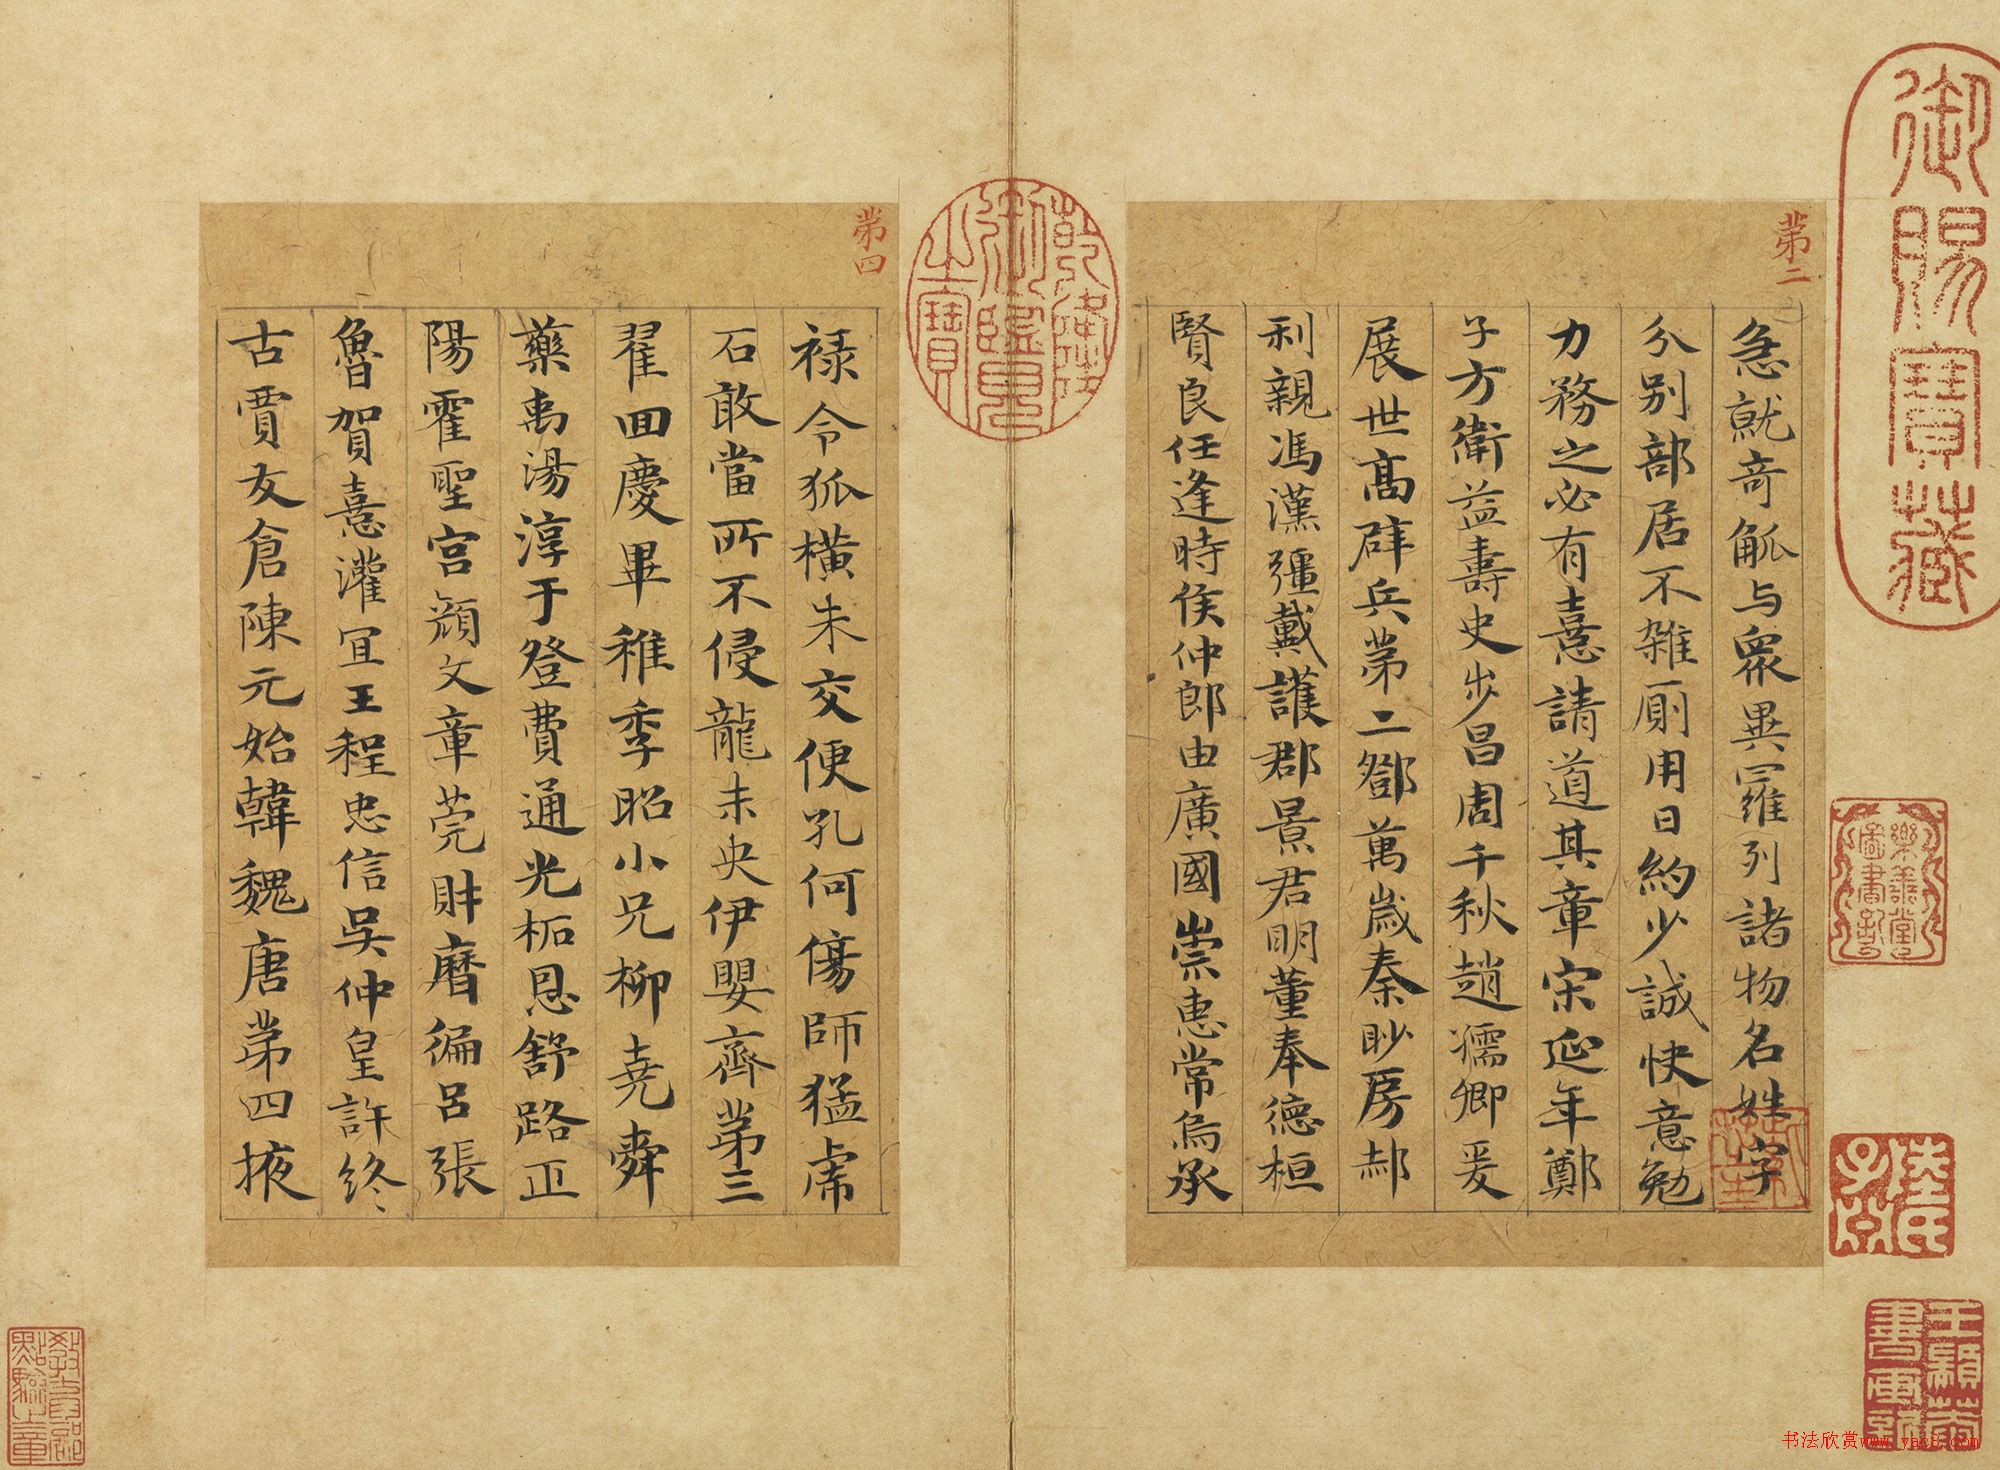 第二
急就奇觚与眾異羅列諸物名姓字
分別部居不雜廁用日約少誠快意勉
力務之必有憙請道其章宋延年鄭
子方衛益壽史步昌周千秋趙孺卿爰
展世高辟兵第二鄧萬歲秦眇房郝
利親馮漢彊戴護郡景君明董奉德桓
賢良任逢時侯仲郎由廣國崇惠常烏承
第四
祿令狐橫朱交便孔何傷師猛虎
石敢當所不侵龍未央伊嬰齊第三
翟回慶畢稚季昭小兄柳堯舜
藥禹湯淳于登費通光柘恩舒路正
陽霍聖宮顏文章莞財曆徧呂張
魯賀憙灌冝王程忠信吳仲皇許終
古賈友倉陳元始韓魏唐第四掖
御賜寶藏
乾隆御覽之寶
樂善堂圖書記
教育部點驗之章
书法欣赏www.yac8.com